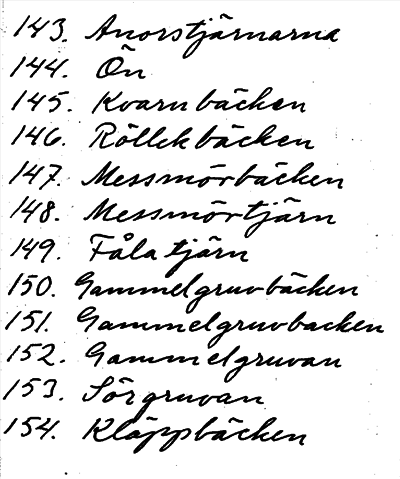 143. Anorstjärnarna
144. Ön
145. Kvarnbäcken
146. Röllekbäcken
147. Messmörbäcken
148. Messmörtjärn
149. Fåla tjärn
150. Gammelgruvbäcken
151. Gammelgruvbacken
152. Gammelgruvan
153. Sörgruvan
154. Kläppbäcken